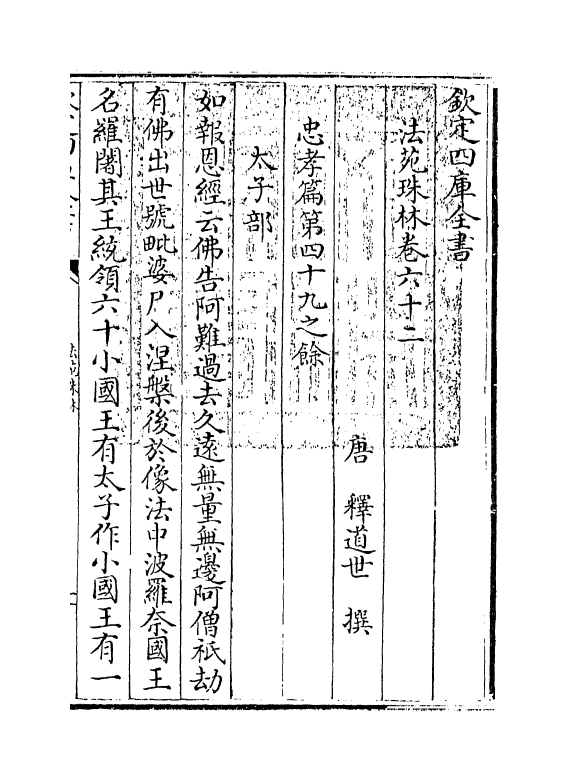 欽定四庫全書
法苑珠林卷六十二
唐　釋道世　撰
忠孝篇第四十九之餘
太子部
如報恩經云佛告阿難過去久遠無量無邊阿僧祇劫
有佛出世號毗婆尸入涅槃後於像法中波羅奈國王
名羅闍其王統領六十小國王有太子作小國王有一